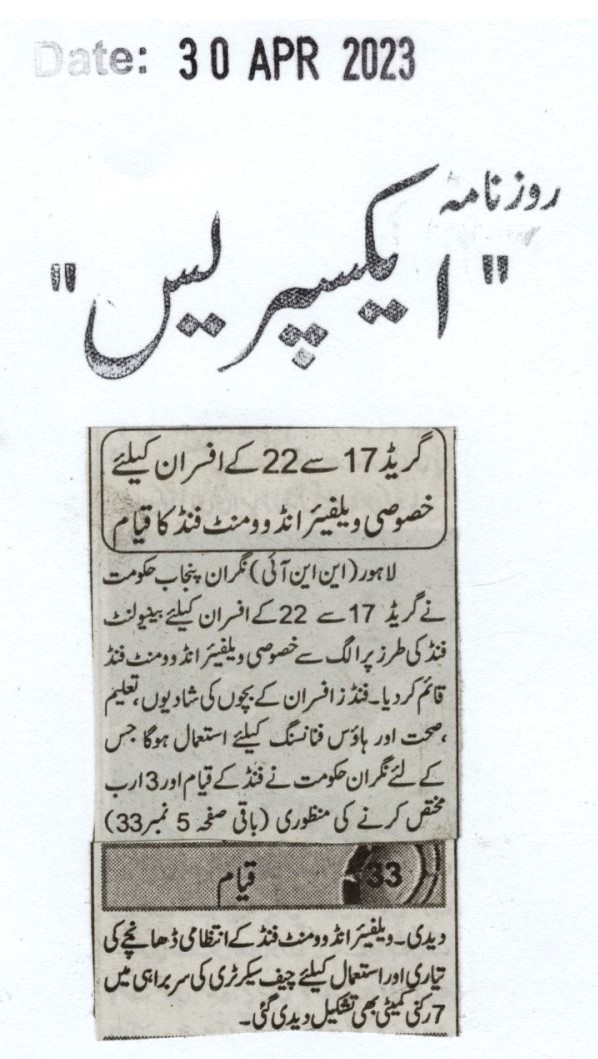 Date: 30 APR 2023
روزنامہ
"ایکسپریس"
گریڈ 17 سے 22 کے افسران کیلئے
خصوصی ویلفیئر انڈوومنٹ فنڈ کا قیام
لاہور (این این آئی) نگران پنجاب حکومت
نے گریڈ 17 سے 22 کے افسران کیلئے بینولنٹ
فنڈ کی طرز پر الگ سے خصوصی ویلفیئر انڈوومنٹ فنڈ
قائم کر دیا۔ فنڈز افسران کے بچوں کی شادیوں، تعلیم
،صحت اور ہاؤس فنانسنگ کیلئے استعمال ہوگا جس
کے لئے نگران حکومت نے فنڈ کے قیام اور 3 ارب
مختص کرنے کی منظوری (باقی صفحہ 5 نمبر 33)
33 قیام
دیدی۔ ویلفیئر انڈوومنٹ فنڈ کے انتظامی ڈھانچے کی
تیاری اور استعمال کیلئے چیف سیکرٹری کی سربراہی میں
7 رکنی کمیٹی بھی تشکیل دیدی گئی۔